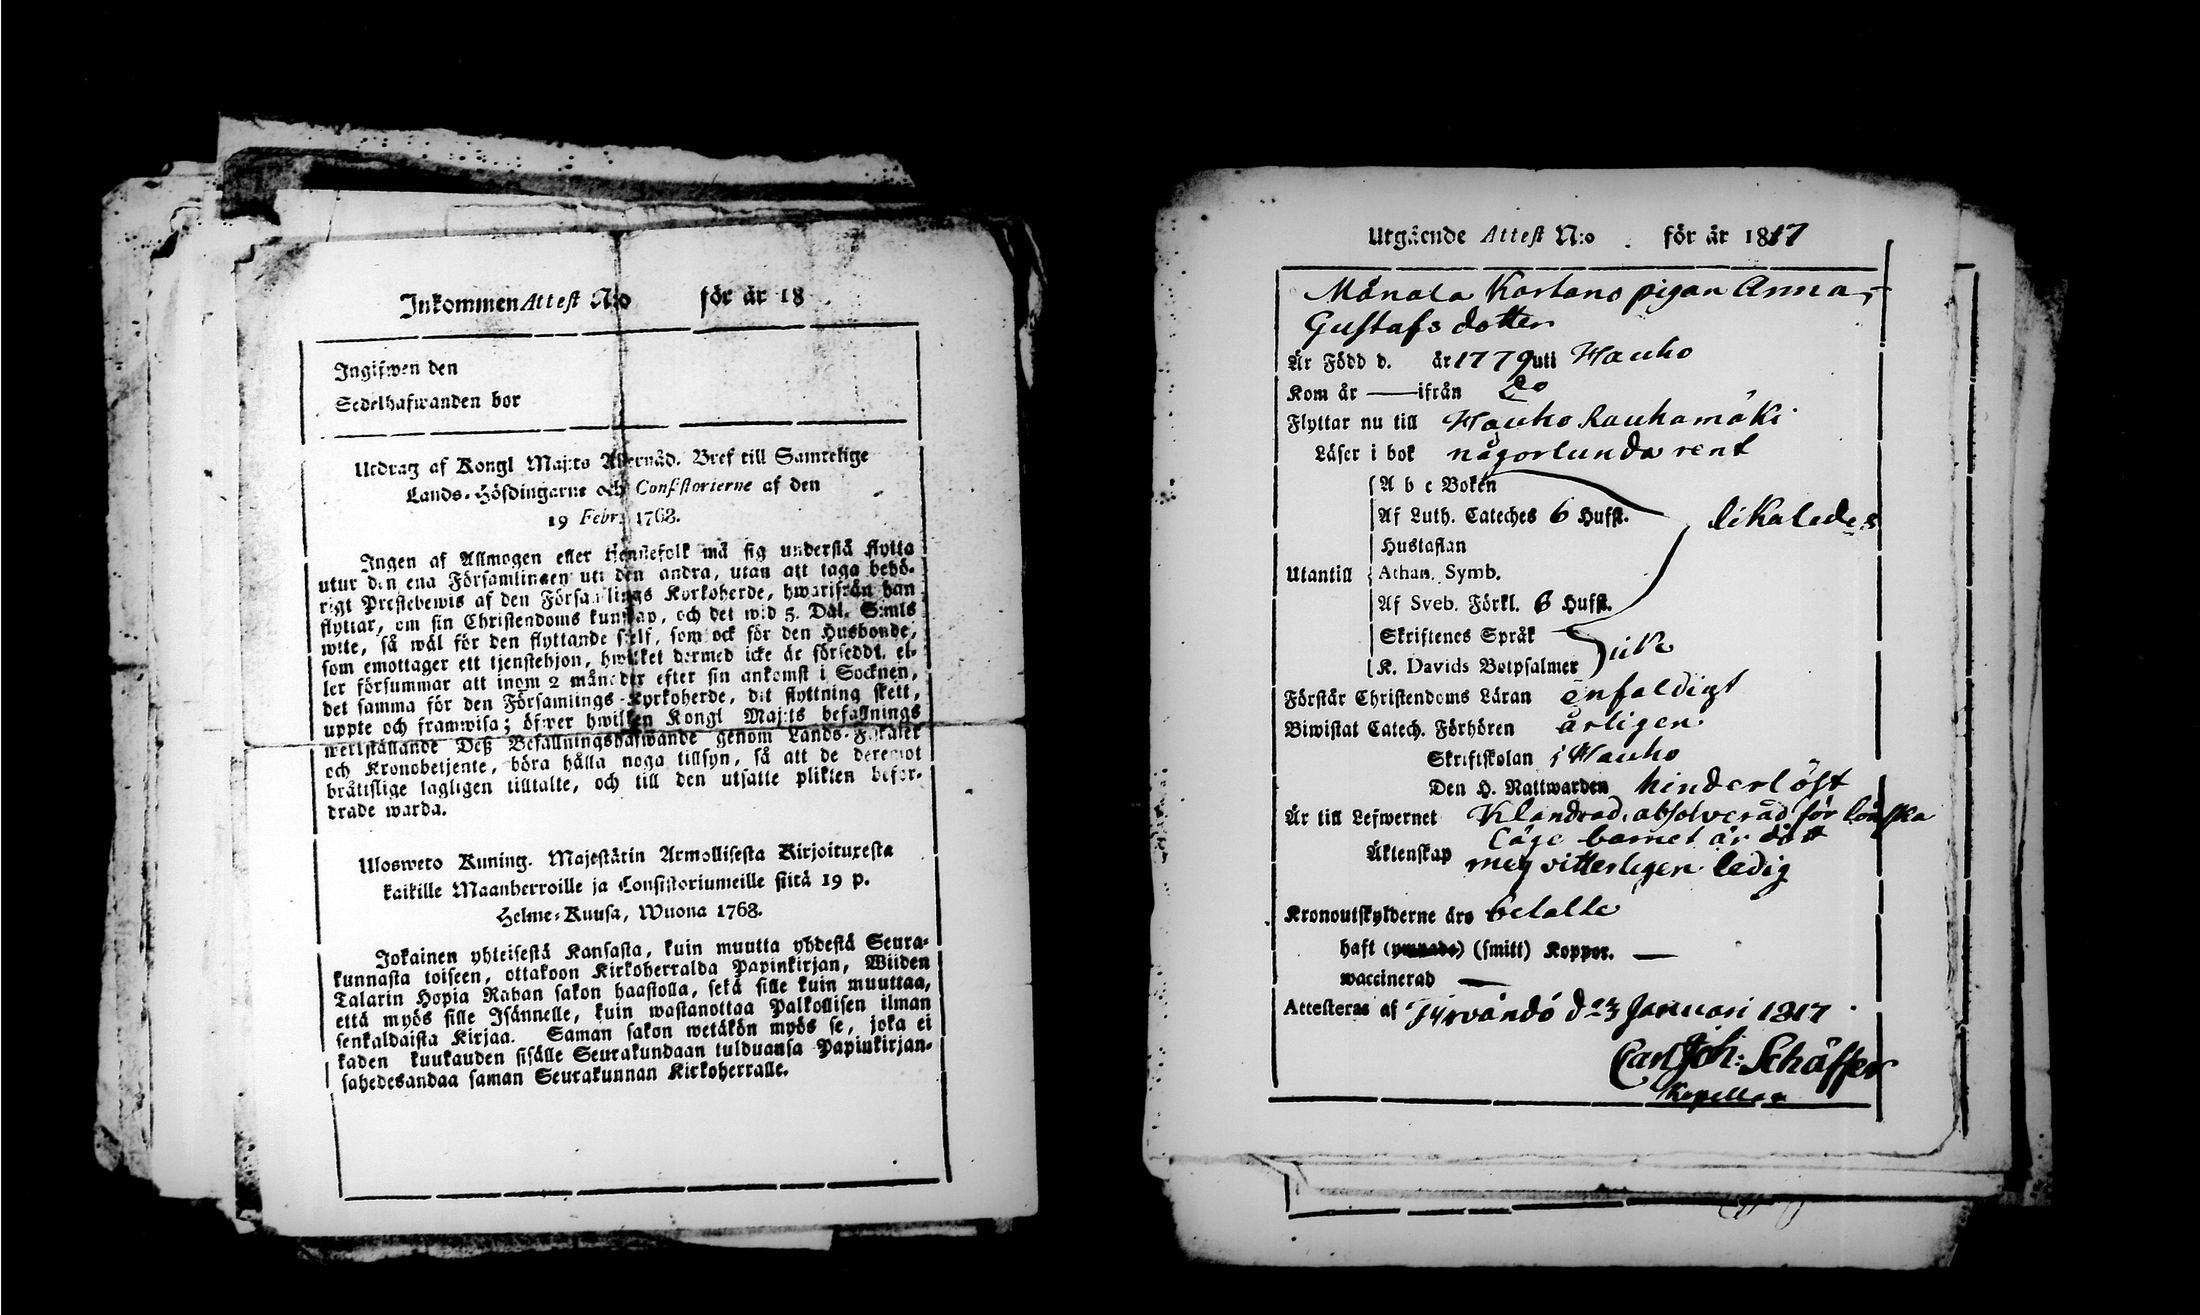 Inkommen Attest N:o för är 18
Ingifwen den
Sedelhafwanden bor
Utdrag af Kongl Maj:ts Allernåd. Bref till Samtelige
Lands-Höfdingarne och Consistorierne af den
19 Febr. 1768.
Ingen af Allmogen eller tjenstefolk må sig understå flytta
utur den ena Församlingen uti den andra, utan att taga behö-
rigt Prestebewis af den Församlings Kyrkoherde, hwarifrån han
flyttar, om sin Christendoms kunskap, och det wid 5. Dal. S:mts
wite, så wäl för den flyttande self, som ock för den Husbonde,
som emottager ett tjenstehjon, hwilket dermed icke är försedt, el-
ler försummar att inom 2 månader efter sin ankomst i Socknen,
det samma för den Församlings Kyrkoherde, dit flyttning skett,
uppte och framwisa; öfwer hwilken Kongl Maj:ts befallnings
werkställande Deß Befallningshafwande genom Lands-Fiskaler
och Kronobetjente, böra hålla noga tillsyn, så att de deremot
bråtislige lagligen tilltalte, och till den utsatte plikten befor-
drade warda.
Ulosweto Kuning. Majestätin Armollisesta Kirjoituxesta
kaikille Maanherroille ja Consistoriumeille siitä 19 p.
Helme-Kuusa, Wuona 1768.
Jokainen yhteisestä Kansasta, kuin muutta yhdestä Seura-
kunnasta toiseen, ottakoon Kirkoherralda Papinkirjan, Wiiden
Talarin Hopia Rahan sakon haastolla, sekä sille kuin muuttaa,
että myös sille Isännelle, kuin wastanottaa Palkollisen ilman
senkaldaista Kirjaa. Saman sakon wetäkön myös se, joka ei
kaden kuukauden sisälle Seurakundaan tulduansa Papinkirjan-
sahedesandaa saman Seurakunnan Kirkoherralle.
Utgående Attest N:o för är 1817
Månala Kartano pigan Anna
Gustafs dotter
Är Född d. år 1779 uti Hauho
Kom år — ifrån Do
Flyttar nu till Hauho Rauhamäki
Läser i bok någorlunda rent
A b c Boken
Af Luth. Cateches 6 Hufst. likaledes
Hustaflan
Utantill Athan. Symb.
Af Sveb. Förkl. 6 Hufst.
Skriftenes Språk
K. Davids Botpsalmer
Förstår Christendoms Läran enfaldigt
Biwistat Catech. Förhören årligen
Skriftskolan i Hauho
Den H. Nattwarden hinderlöst
Är till Lefwernet Klandrad, absolverad för lönska
Läge barnet är dött
Äktenskap mig vitterligen ledig
Kronoutskylderne äro betalte
haft (ympade) (smitt) Koppor. —
waccinerad —
Attesteras af Tyrvändö d 23 Januari 1817
Carl Joh: Schäffer
Kapellan